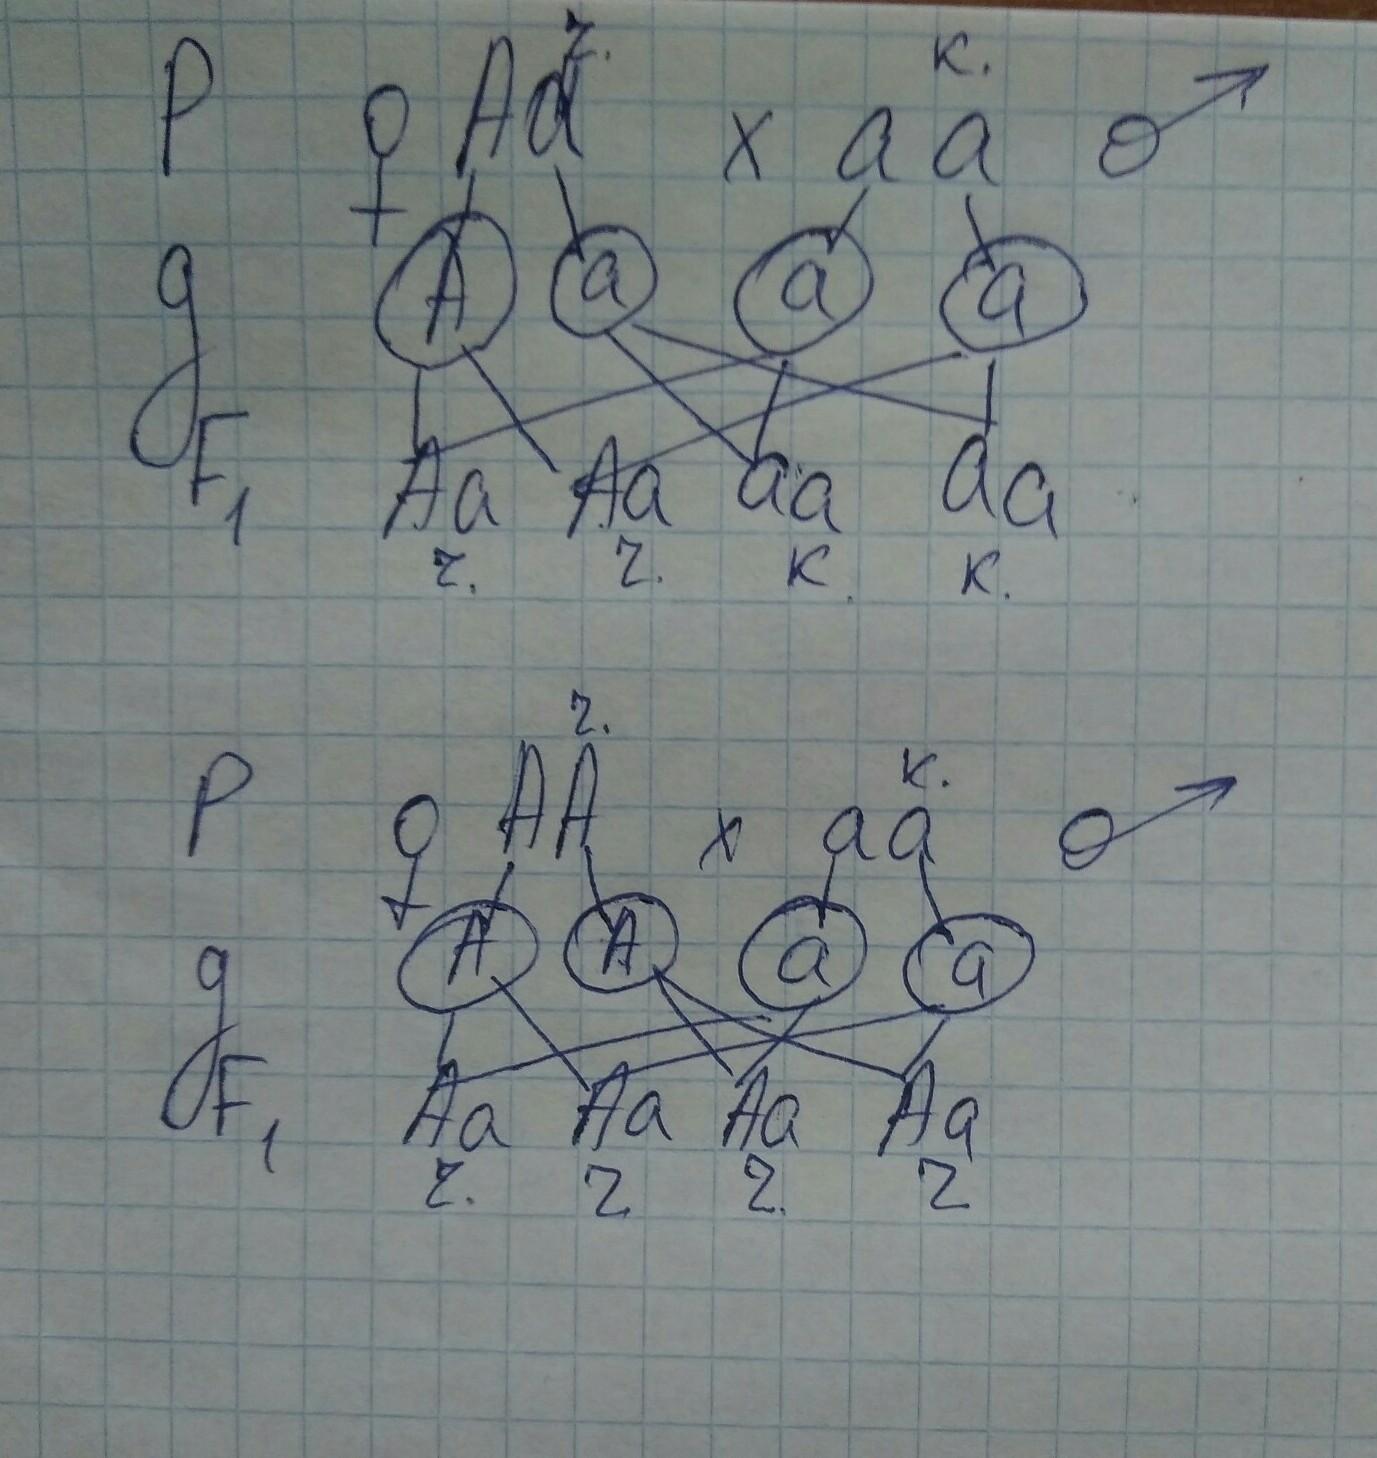 г. к.
P ♀ Aa x aa ♂
g A a a a
F1 Aa Aa aa aa
г. г. к. к.
г. к.
P ♀ AA x aa ♂
g A A a a
F1 Aa Aa Aa Aa
г. г. г. г